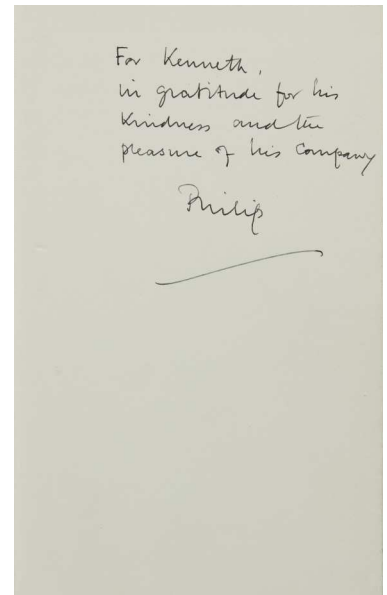 For Kenneth,
in gratitude for his
kindness and the
pleasure of his company
Philip